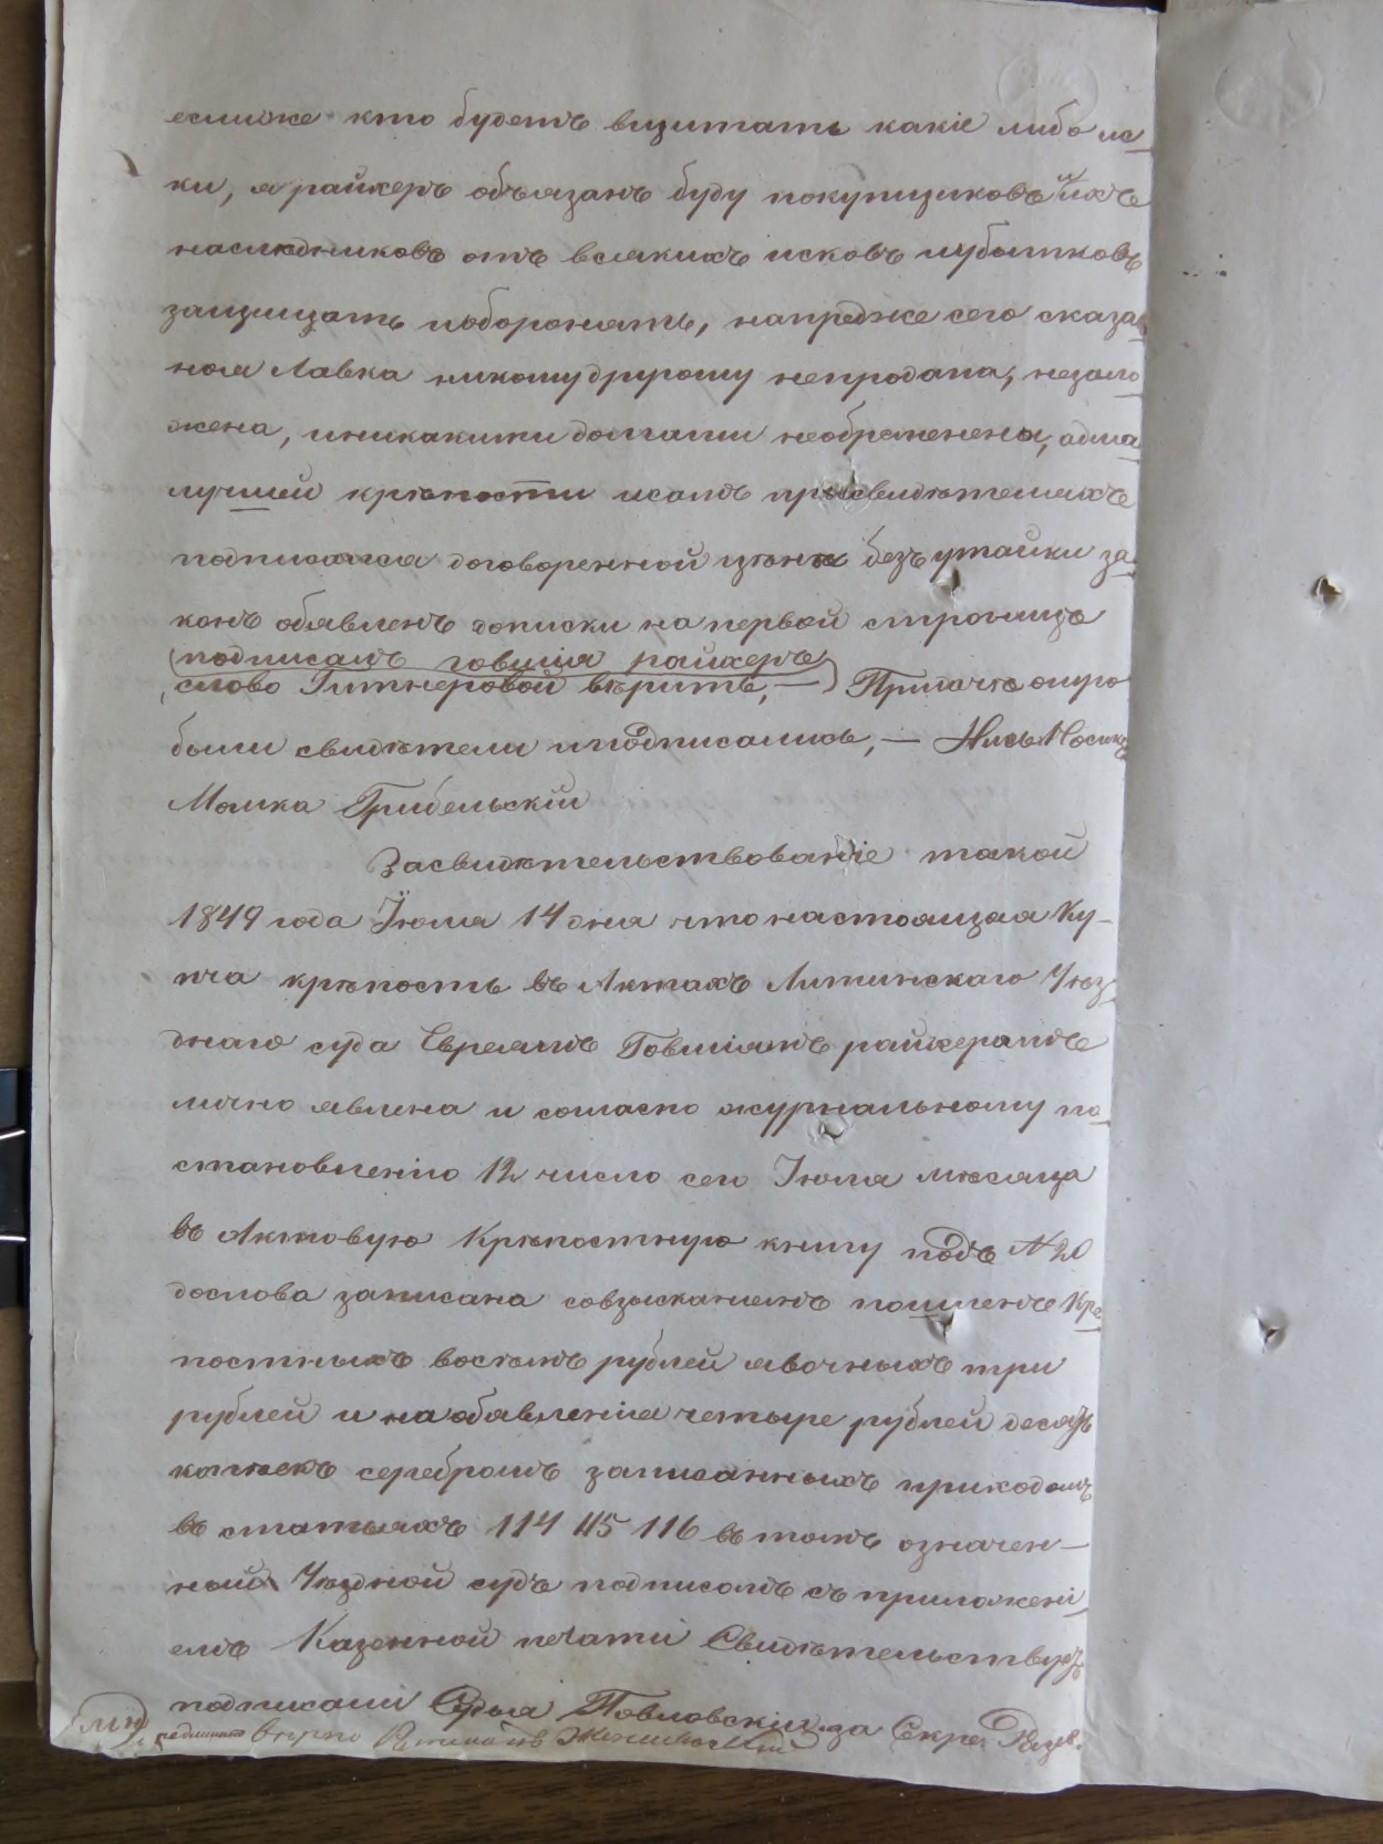 еслиже кто будетъ вщитать какіе либо ис
ки, я райхеръ объязанъ буду покупщиковъ и ихъ
наслѣдниковъ отъ всякихъ исковъ иубытковъ
защищать иоборонять, напредже сего сказа
ная Лавка никомудругому непродана, незало
жена, иникакими долгами необременена, адля
лучшей крѣпости исамъ присвидѣтеляхъ
подписался договоренной цѣны безъ утайки за
конъ обявленъ дописки на первой страницѣ
подписалъ говшія райхеръ
слово Гитнеровой вѣрить, — Причемъ
были свидѣтели иподписались, —
Мошка Грибельскій
Засвидѣтельствованіе такой
1849 года Іюля 14 дня что настоящая Ку-
пча крѣпость въ Актахъ Литинскаго Уѣз
днаго суда Евреямъ Говшіямъ райхерамъ
лично явлена и согласно журнальному по
становленію 12 число сего Іюля мѣсяца
въ Актовую Крѣпостную книгу подъ N 20
дослова записана совзысканіемъ пошленъ Крѣ
постныхъ восѣмъ рублей явочныхъ три
рублей и на обявленія четыре рублей десять
копѣекъ серебромъ записанныхъ приходомъ
въ статьяхъ 114 115 116 въ томъ означен-
ный Уѣздной судъ подписомъ съ приложені
емъ Казенной печати Свидѣтельствуетъ
подписали Судья Павловскій за Секре.
вѣрно